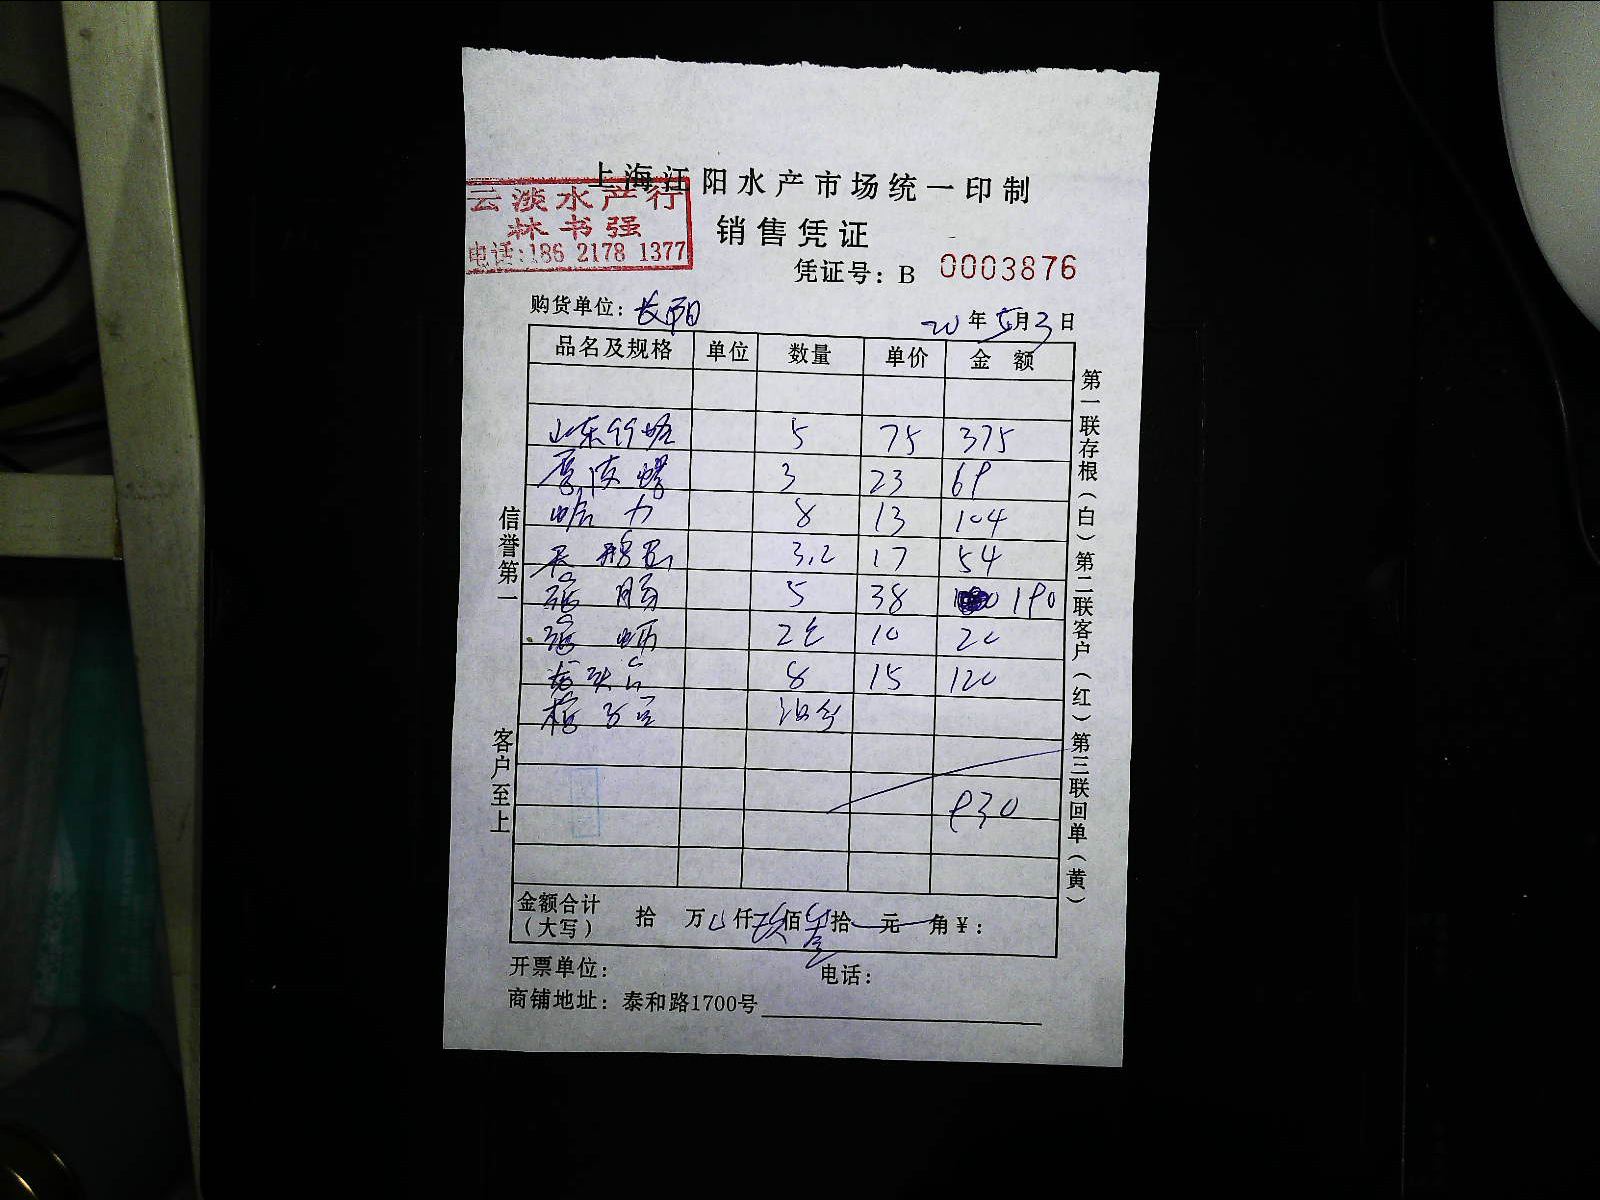 上海江阳水产市场统一印制
云淡水产行
林书强
电话:186 2178 1377
销售凭证
凭证号: B 0003876
购货单位: 长阳
20年5月3日
品名及规格 单位 数量 单价 金额
山东竹蛏 5 75 375
3 23 69
哈力 8 13 104
3.2 17 54
5 38 190
2 10 20
8 15 120
930
金额合计(大写) 拾 万 仟 玖佰 叁拾 元 角 ¥:
开票单位: 电话:
商铺地址: 泰和路1700号
信誉第一
客户至上
第一联存根(白)第二联客户(红)第三联回单(黄)